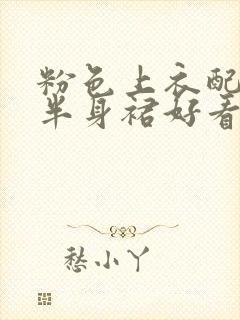 粉色上衣配
半身裙好看
愁小丫